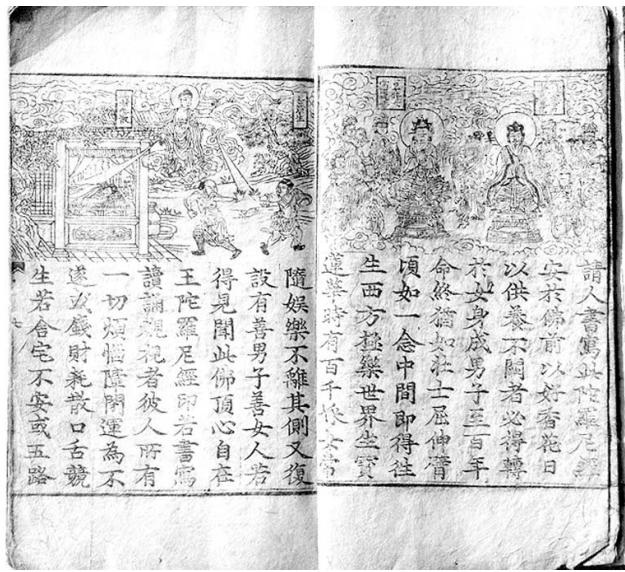 請人書寫此陀羅尼經
安於佛前以好香花日
以供養不闕者必得轉
於女身成男子至百年
命終猶如壮士屈伸臂
頃如一念中間即得徃
生西方極樂世界坐寳
蓮華時有百千婇女常
隨娛樂不離其側又復
設有善男子善女人若
得見聞此佛頂心自在
王陀羅尼經印若書寫
讀誦觀視者彼人所有
一切煩惱障閉運為不
遂或錢財耗散口舌競
生若舍宅不安或五路